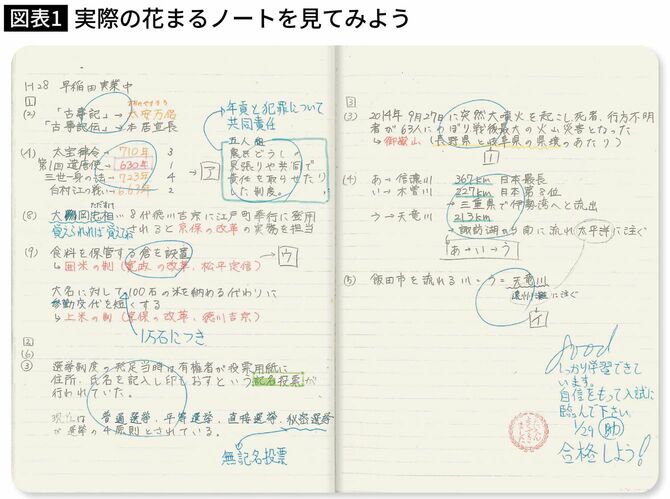 図表1 実際の花まるノートを見てみよう
H28 早稲田実業中
1
(2) 「古事記」→太安万侶
「古事記伝」→本居宣長
年貢と犯罪について
共同責任
(4) 太宝律令→710年 3
第1回遣唐使→630年 1
三世一身の法→723年 4
白村江の戦い→663年 2
ア
五人組
農民どうしの
見張りや共同で
責任を取らせたり
した制度。
(8) 大岡忠相…8代徳川吉宗に江戸町奉行に登用
されると享保の改革の実務を担当
覚えられれば覚えてね
(9) 食料を保管する倉を設置
ウ
↳囲米の制(寛政の改革、松平定信)
大名に対して100石の米を納める代わりに
参勤交代を短くする
↳上米の制(享保の改革、徳川吉宗)
1万石につき
2
(6)
③ 選挙制度の発足当時は有権者が投票用紙に
住所、氏名を記入し印もおすという記名投票が
行われていた。
現在は 普通選挙、平等選挙、直接選挙、秘密選挙
が選挙の4原則とされている。
無記名投票
3
(3) 2014年9月27日に突然大噴火を起こし死者、行方不明
者が63人にのぼり戦後最大の火山災害となった
↳御嶽山(長野県と岐阜県の県境のあたり)
(4) あ→信濃川 367km 日本最長
い→木曽川 227km 日本第8位
↳三重県で伊勢湾へと流出
う→天竜川 213km
↳諏訪湖から南に流れ太平洋に注ぐ
あ→い→う
(5) 飯田市を流れる川…う=天竜川
に注ぐ
イ
good
しっかり学習できて
います。
自信をもって入試に
臨んで下さい。
1/29
合格しよう!